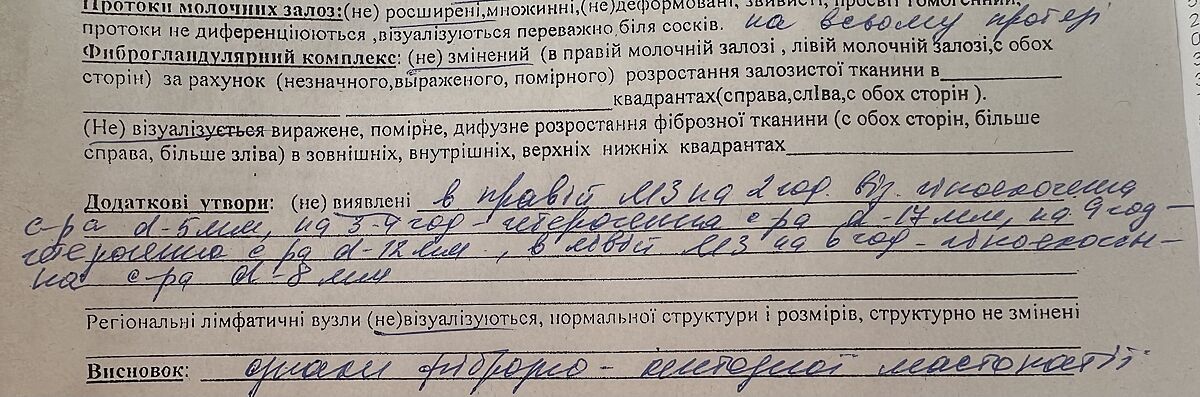 Протоки молочних залоз:(не) розширені,множинні,(не)деформовані, звивисті, просвіт гомогенний,
протоки не диференціюються ,візуалізуються переважно біля сосків. на всьому протязі
Фиброгландулярний комплекс: (не) змінений (в правій молочній залозі , лівій молочній залозі,с обох
сторін) за рахунок (незначного,выраженого, помірного) розростання залозистої тканини в
квадрантах(справа,слІва,с обох сторін ).
(Не) візуалізується виражене, помірне, дифузне розростання фіброзної тканини (с обох сторін, більше
справа, більше зліва) в зовнішніх, внутрішніх, верхніх нижніх квадрантах
Додаткові утвори: (не) виявлені в правій МЗ на 2 год. віз. гіпоехогенна
с-ра d-5мм, на 3-4 год - гетерогенна с-ра d-17мм, на 9 год -
гетерогенна с-ра d-12мм, в лівій МЗ на 6 год - гіпоехоген-
на с-ра d-8мм
Регіональні лімфатичні вузли (не)візуалізуються, нормальної структури і розмірів, структурно не змінені
Висновок: ознаки фіброзно - кистозної мастопатії